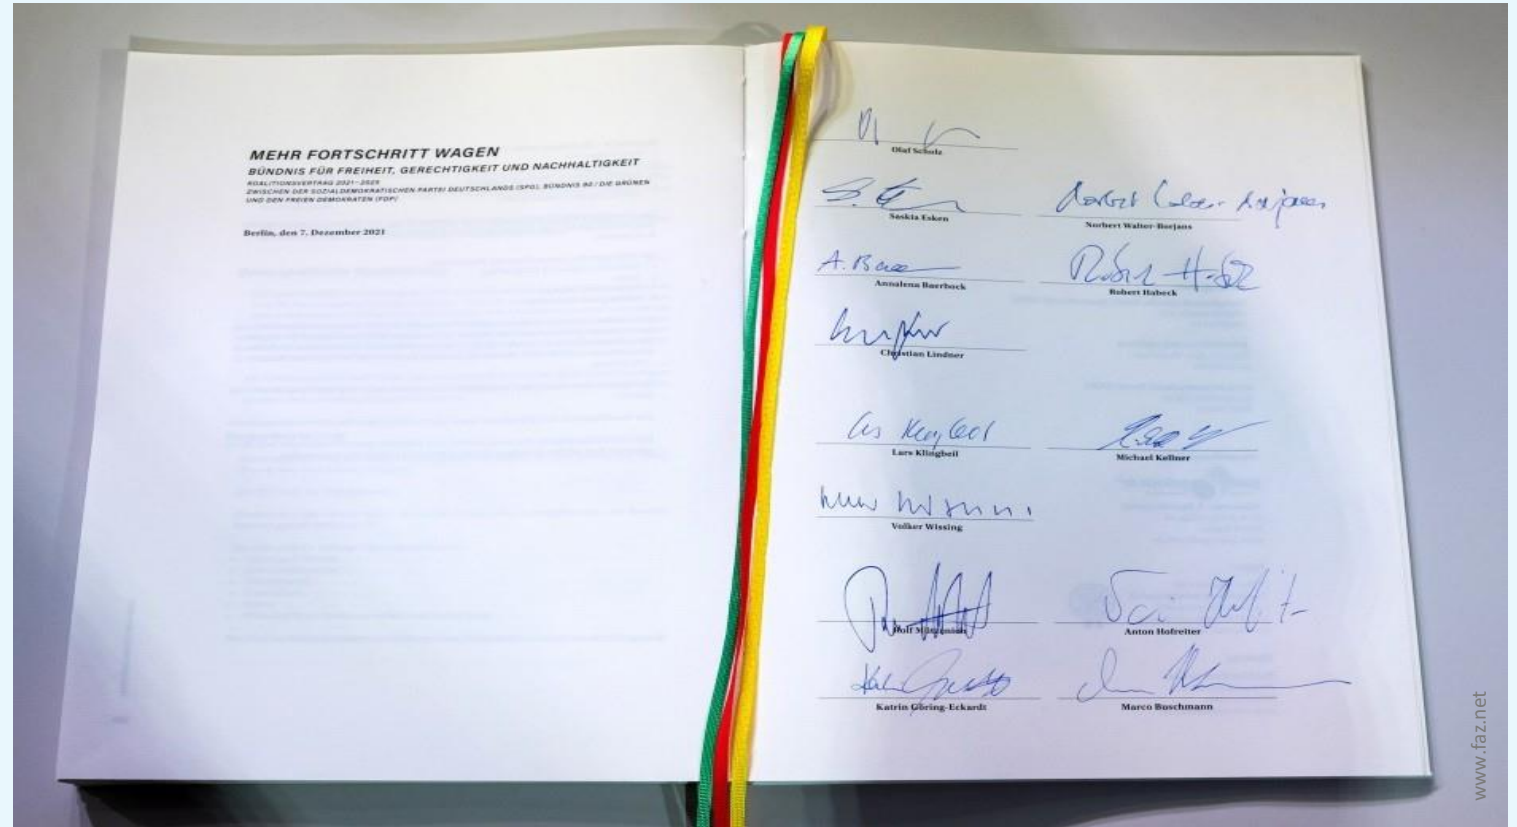 MEHR FORTSCHRITT WAGEN
BÜNDNIS FÜR FREIHEIT, GERECHTIGKEIT UND NACHHALTIGKEIT
KOALITIONSVERTRAG 2021–2025
ZWISCHEN DER SOZIALDEMOKRATISCHEN PARTEI DEUTSCHLANDS (SPD), BÜNDNIS 90 / DIE GRÜNEN
UND DEN FREIEN DEMOKRATEN (FDP)
Berlin, den 7. Dezember 2021
Olaf Scholz
Saskia Esken
Norbert Walter-Borjans
Annalena Baerbock
Robert Habeck
Christian Lindner
Lars Klingbeil
Michael Kellner
Volker Wissing
Rolf Mützenich
Anton Hofreiter
Katrin Göring-Eckardt
Marco Buschmann
www.faz.net